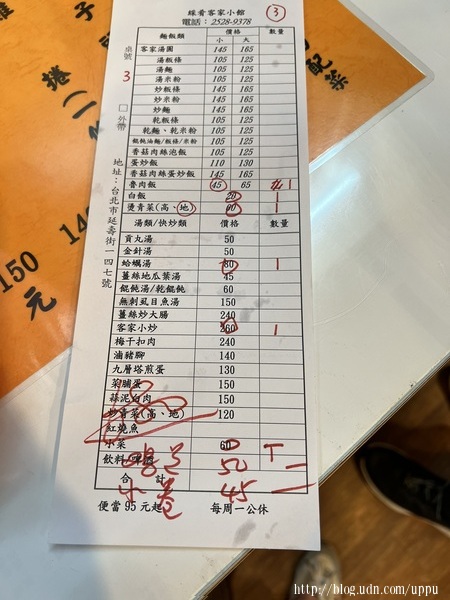 綵肴客家小館
電話：2528-9378
③
桌號 3
□ 外帶
地址：台北市延壽街一四七號
麵飯類 價格 數量
小 大
客家湯圓 145 165
湯粄條 105 125
湯麵 105 125
湯米粉 105 125
炒粄條 145 165
炒米粉 145 165
炒麵 145 165
乾粄條 105 125
乾麵、乾米粉 105 125
餛飩油麵/粄條/米粉 105 125
香菇肉絲泡飯 105 125
蛋炒飯 110 130
香菇肉絲蛋炒飯 145 165
魯肉飯 45 65 1
白飯 20 1
燙青菜(高、地) 1
湯類/快炒類 價格 數量
貢丸湯 50
金針湯 50
蛤蠣湯 80 1
薑絲地瓜葉湯 45
餛飩湯/乾餛飩 60
無刺虱目魚湯 150
薑絲炒大腸 240
客家小炒 260 1
梅干扣肉 240
滷豬腳 140
九層塔煎蛋 130
菜脯蛋 150
蒜泥白肉 150
炒青菜(高、地) 120
紅燒魚
小菜 60
飲料/啤酒 50
合 計
小卷 45
便當95元起 每周一公休
子
捲
(一
150
140
元
配
http://blog.udn.com/uppu